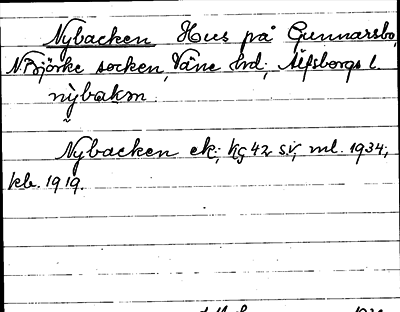 Nybacken Hus på Gunnarsbo,
N. Björke socken, Väne hd; Älfsborgs l.
nỳbakɑn
Nybacken ek; kg 42 SV, ml. 1934;
kb. 1919.